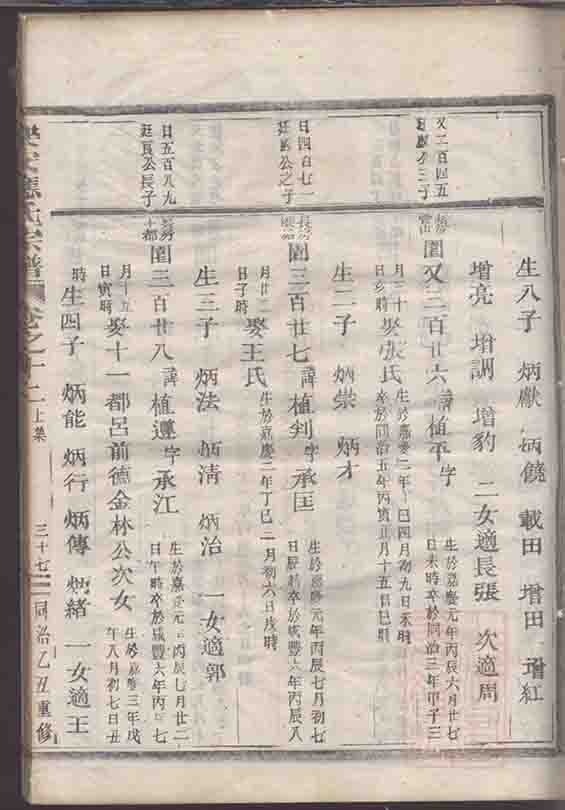 生八子 炳獻 炳饒 載田 增田 增紅
增亮 增訓 增豹 二女適長張 次適周
又二百四五
公三子
圍又三百廿六 諱植平字 生於嘉慶元年丙辰六月廿七
日未時卒於同治三年甲子三
月三十日亥時 娶張氏 生於嘉慶二年丁巳四月初九日未時
卒於同治五年丙寅正月十五日巳時
生二子 炳崇 炳才
日四百七一
公之子
圍三百廿七 諱植剣字承匡 生於嘉慶元年丙辰七月初七
日辰時卒於咸豐六年丙辰八
月廿二日子時 娶王氏 生於嘉慶二年丁巳二月初六日戌時
生三子 炳法 炳淸 炳治 一女適郭
日五百八九
廷頁公長子
圍三百廿八 諱植遵字承江 生於嘉慶元年丙辰七月廿二
日午時卒於咸豐六年丙辰七
月十五日寅時 娶十一都呂前德金林公次女 生於嘉慶三年戊
午八月初七日丑
時 生四子 炳能 炳行 炳傳 炳緒 一女適王
應氏宗譜 卷之十二 上集 三十七 同治乙丑重修